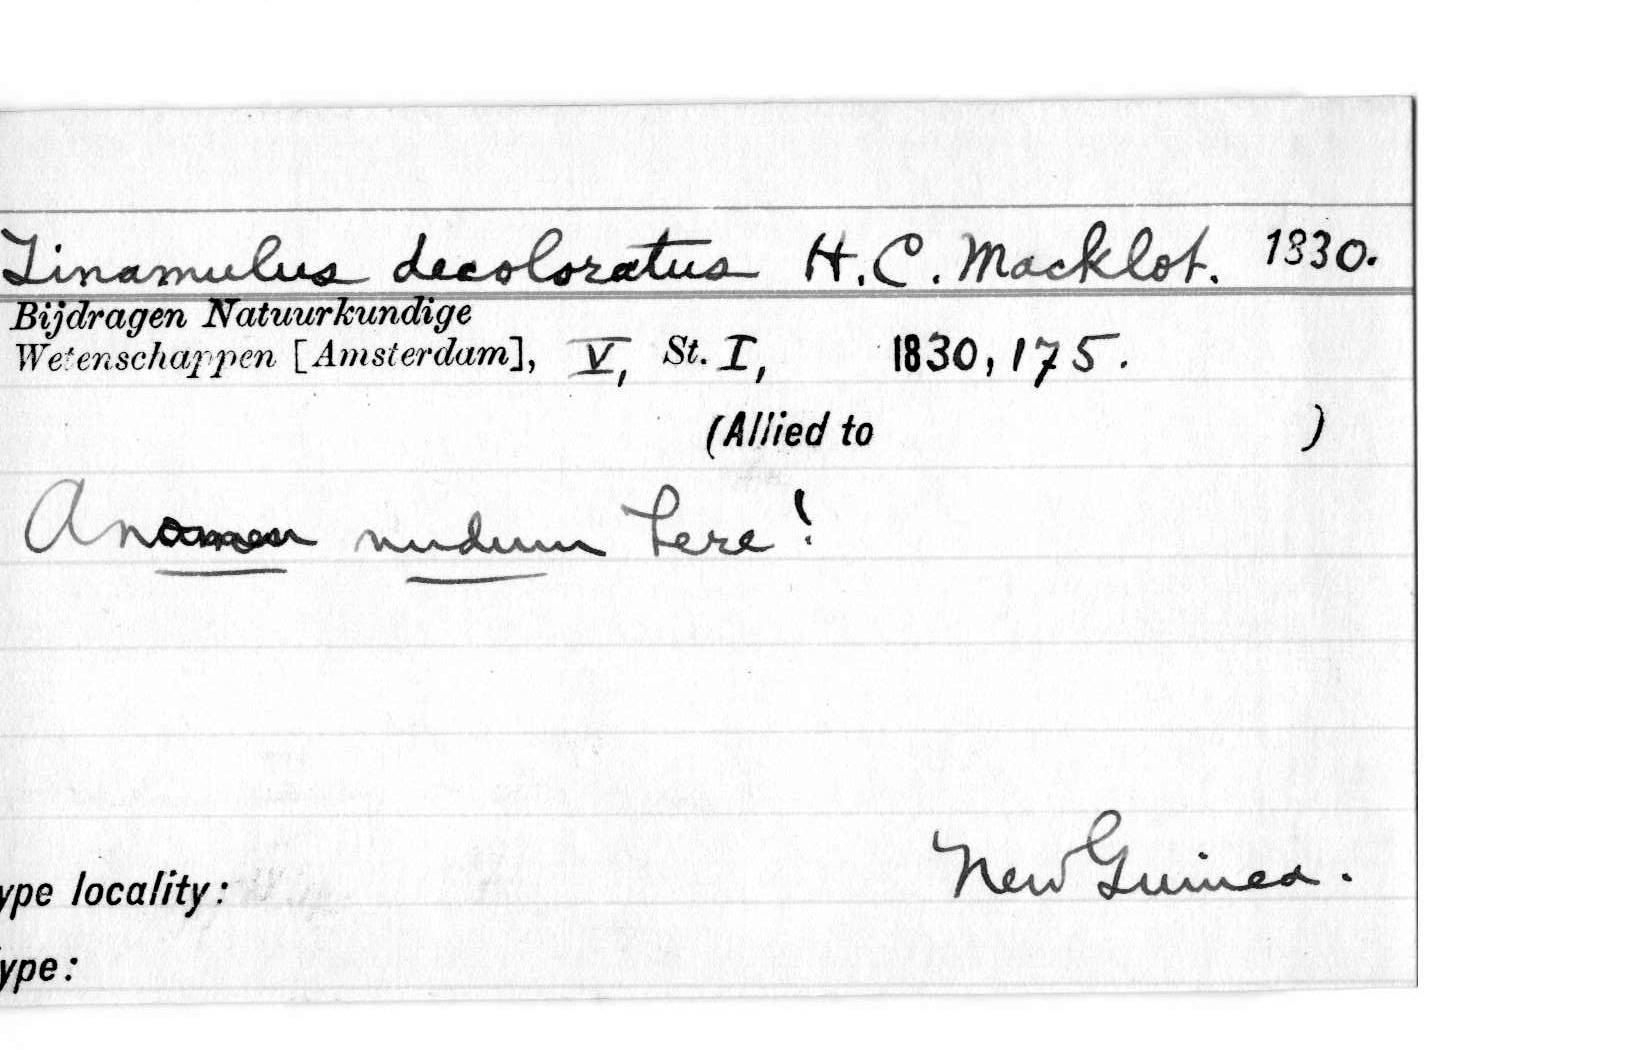 Tinamulus decoloratus H. C. Macklot. 1830.
Bijdragen Natuurkundige
Wetenschappen [Amsterdam], V, St. I, 1830, 175.
(Allied to )
A nomen nudum here!
New Guinea.
ype locality:
ype: